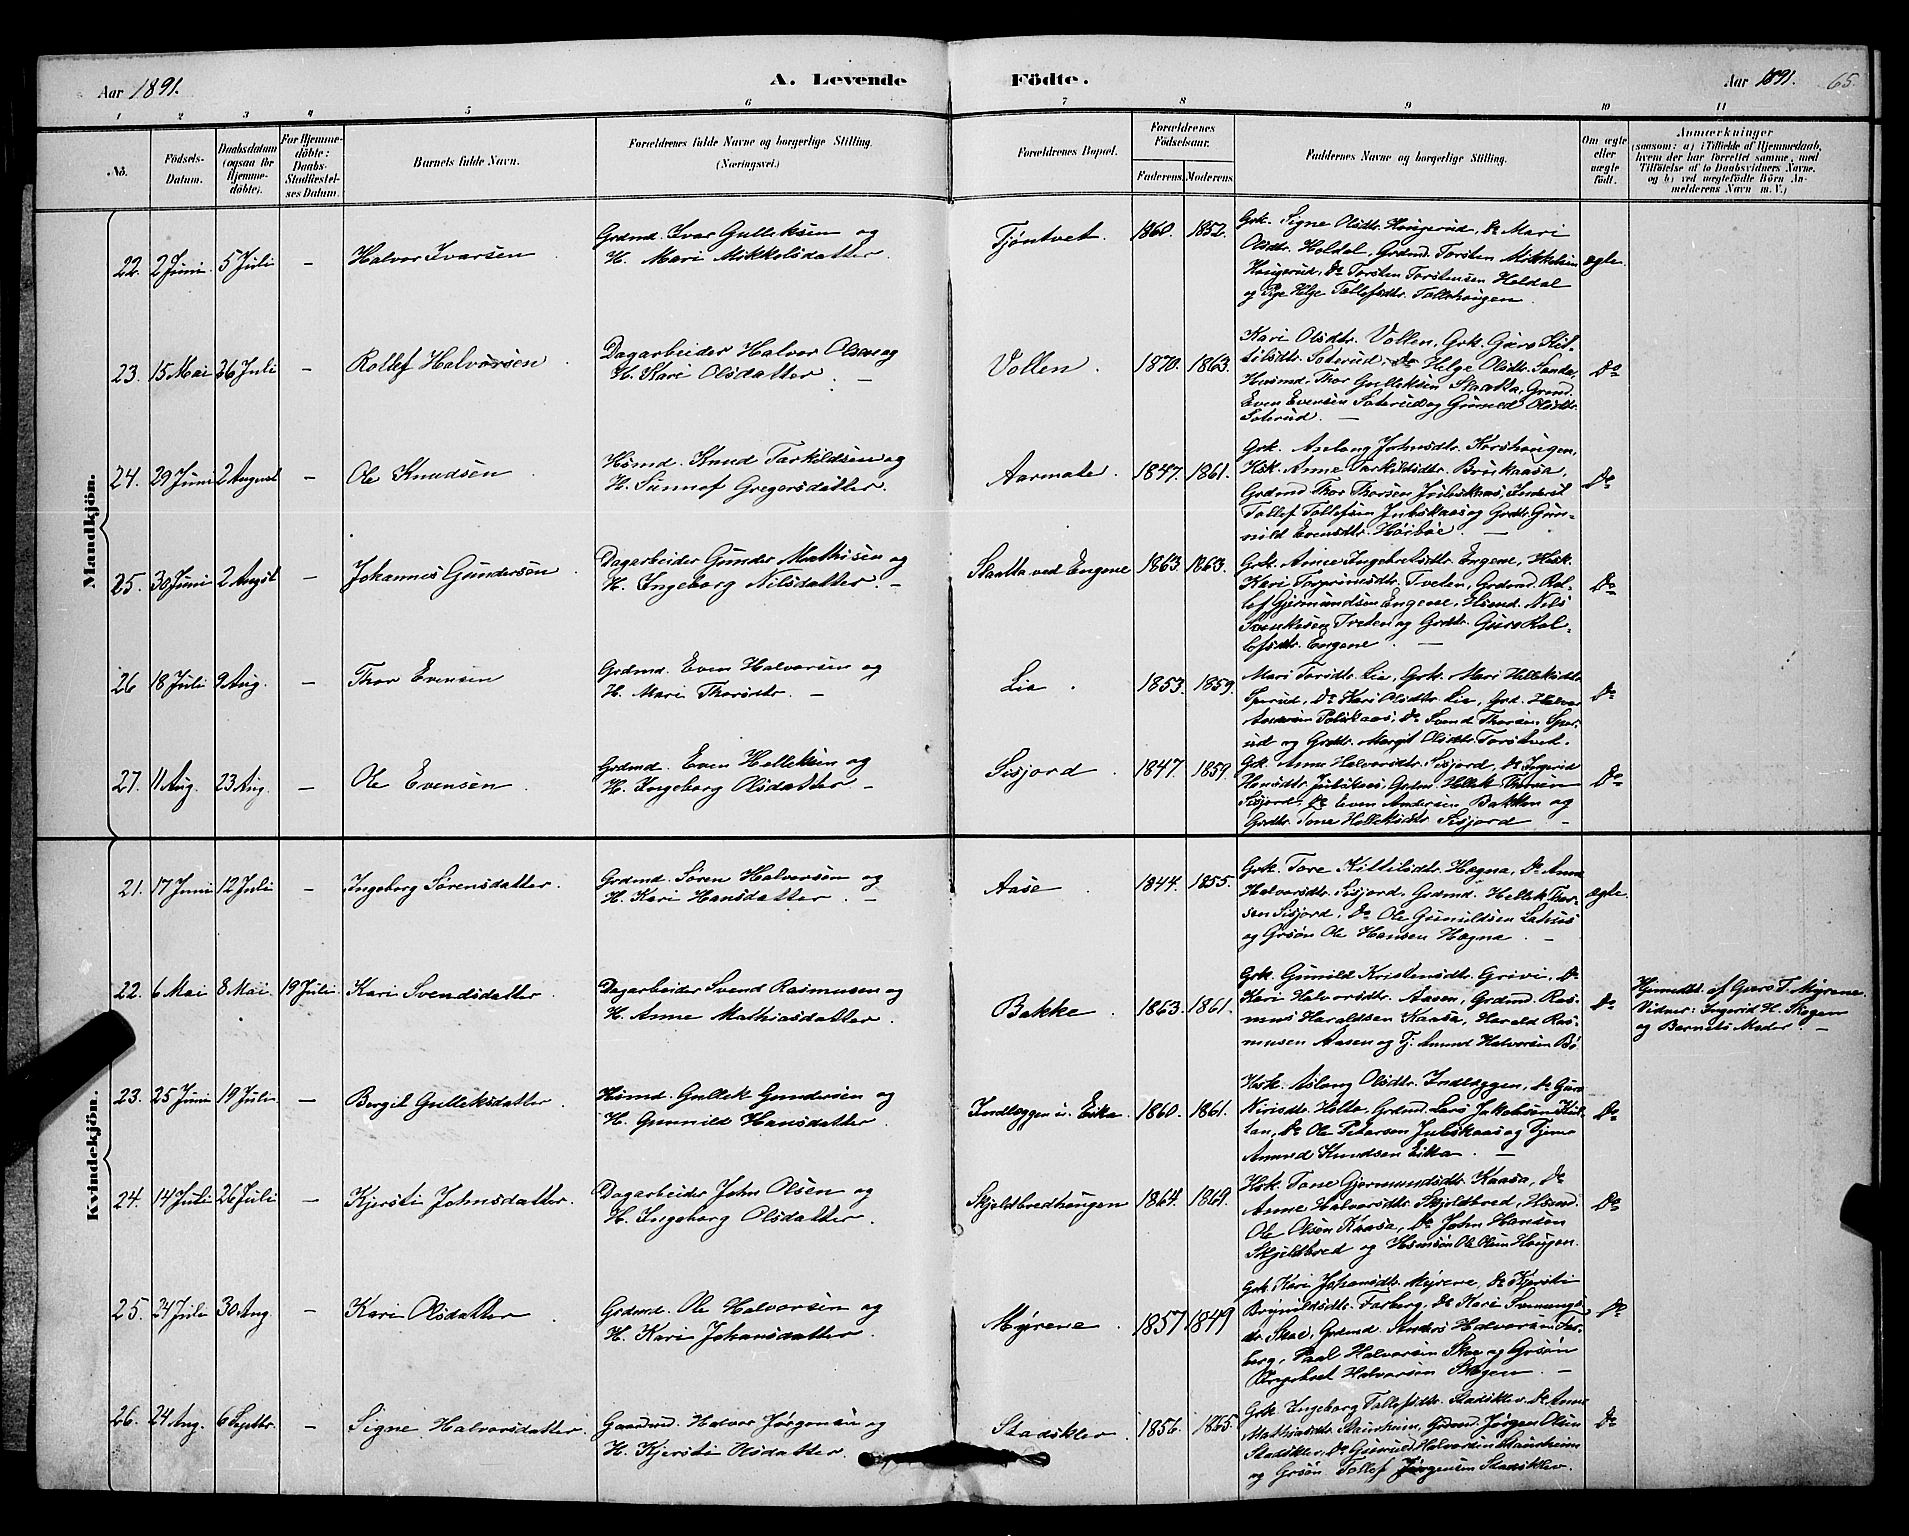 Aar 1891. A. Levende Födte. Aar 1891. 65.
1 2 3 4 5 6 7 8 9 10 11
No. Födsels-Datum. Daabsdatum (ogsaa for Hjemmedöbte). For Hjemmedöbte: Daabs-Stadfestelses Datum. Barnets fulde Navn. Forældrenes fulde Navne og borgerlige Stilling. (Næringsvei.) Forældrenes Bopæl. Forældrenes Födselsaar. Faderens. Moderens. Faddernes Navne og borgerlige Stilling. Om ægte eller uægte födt. Anmærkninger (saasom: a) i Tilfælde af Hjemmedaab, hvem der har forrettet samme, med Tilföielse af to Daabsvidners Navne, og b) ved uægtefödte Börn Anmelderens Navn m. V.)
Mandkjön.
22. 2 Juni 5 Juli – Halvor Ivarsen Grdmd. Ivar Gulleksen og
H. Mari Mikkelsdatter. Tjöntvet. 1860. 1852.
Grk. Signe Olsdtr. Hougerud, Do Mari
Olsdtr. Holdal, Grdmd. Torsten Mikkelsen
Hougerud, Do Torsten Torstensen Holdal
og Pige Helge Tollefsdtr. Tollehougen. ægte.
23. 15 Mai 26 Juli – Rollef Halvorsen Dagarbeider Halvor Olsen og
H. Kari Olsdatter. – Vollen. 1870. 1863.
Kari Olsdtr. Vollen, Grk. Guro Kit-
tilsdtr. Soterud, Do Helge Olsdtr. Sanda,
Husmd. Thor Gulleksen Slaatta, Grmd.
Even Evensen Soterud og Gunild Olsdtr.
Soterud. – Do
24. 29 Juni 2 August – Ole Knudsen Hsmd. Knud Tarkildsen og
H. Sunnof Gregersdatter. Aarmote. 1847. 1861.
Grk. Aslaug Johnsdtr. Korshaugen,
Hsk. Anne Tarkildsdtr. Brukaasa,
Grdmd Thor Thorsen Julskaas, Inderst
Tollef Tollefsen Julskaas og Grdtr. Gun-
nild Evensdtr. Höibøe. – Do
25. 30 Juni 2 Augst – Johannes Gundersen Dagarbeider Gunder Mathisen og
H. Ingeborg Nilsdatter. – Slaatta ved Engene 1863 1863.
Grk. Anne Ingebretsdtr. Engene, Husk.
Kari Torgrimsdtr. Tveten, Grdmd. Rol-
lef Gjermundsen Engene, Hsmd. Nils
Tveten og Grdtr. Guro Rol-
lefsdtr. Engene. – Do
26 18 Juli 9 Aug. – Thor Evensen Grdmd. Even Halvorsen og
H. Mari Thorsdtr. – Lia. 1853. 1859.
Mari Torsdtr. Lia, Grk. Mari Helleksdtr.
Do Kari Olsdtr. Lia, Grd. Halvor
Andersen Do Svend Thorsen
og Grdtr. Margit Olsdtr. Torstvet. Do
27. 11 Aug. 23 Aug. – Ole Evensen Grdmd. Even Helleksen og
H. Ingeborg Olsdatter – Sisjord 1847. 1859.
Grk. Anne Halvorsdtr. Sisjord, Do Ingerid
Hansdtr. Julskaas, Grdm. Hellek Thorsen
Sisjord, Do Even Andersen Bakken og
Grdtr. Tone Helleksdtr. Sisjord – Do
Kvindekjön.
21. 17 Juni 12 Juli – Ingeborg Sörensdatter. Grdmd. Sören Halvorsen og
H. Kari Hansdatter. – Aase 1844. 1855.
Grk. Tore Kittilsdtr. Hagna, Do Anne
Halvorsdtr. Sisjord, Grdmd. Hellek Thor-
sen Sisjord, Do Ole Gunuldsen
og Grsön Ole Hansen Hagna. – ægte.
22. 6 Mai 8 Mai. 19 Juli Kari Svendsdatter Dagarbeider Svend Rasmusen og
H. Anne Mathiasdatter. Bakke. 1863. 1861.
Grk. Gunild Kristensdtr. Grivi, Do
Kari Halvorsdtr. Aasen, Grdmd. Ras-
mus Haraldsen Kaasa, Harald Ras-
musen Aasen og Tj. Amund Halvorsen Bö Do
Hjemmedt. af Guro T. Myrene.
Vidner: Ingerid H. Skogen
og Barnets Moder. –
23. 25 Juni 19 Juli – Bergit Gulleksdatter Hsmd. Gullek Gundersen og
H. Gunnild Hansdatter. Indlæggen u. Eika. 1860. 1861.
Hsk. Aslaug Olsdtr. Indlæggen, Do Guro
Nirisdtr. Holta, Grdmd. Lars Jakobsen
Do Ole Petersen Julskaas og Tjener
Amund Knudsen Eika. – Do
24. 14 Juli 26 Juli – Kjersti Johnsdatter. Dagarbeider John Olsen og
H. Ingeborg Olsdatter. Skjeldbredhougen 1864. 1869.
Hsk. Tone Gjermundsdtr. Kaasa, Do
Anne Halvorsdtr. Skjeldbred, Hsmd.
Ole Olsen Kaasa, Do John Hansen
Skjeldbred og Hsmsön Ole Olsen Hougen. Do
25. 24 Juli 30 Aug. – Kari Olsdatter Grdmd. Ole Halvorsen og
H. Kari Johansdatter. Myrene. 1857 1849
Grk. Kari Johansdtr. Myrene, Do Kjersti
Brynildsdtr. Farberg, Do Kari
Skoe, Grdmd. Anders Halvorsen Far-
berg, Paal Halvorsen Skoe og Grsön
Ingebret Halvorsen Skogen. – Do
26. 24 Aug. 6 Septbr. – Signe Halvorsdatter. Gaardmd. Halvor Jørgensen og
H. Kjersti Olsdatter. Stadsklev. 1856. 1865.
Grk. Ingeborg Tollefsdtr. Stadsklev, Do Anne
Mathiasdtr. Staurheim, Grdmd. Jørgen Olsen
Stadsklev, Do Halvorsen Staurheim
og Grsön Tollef Jørgensen Stadsklev. Do